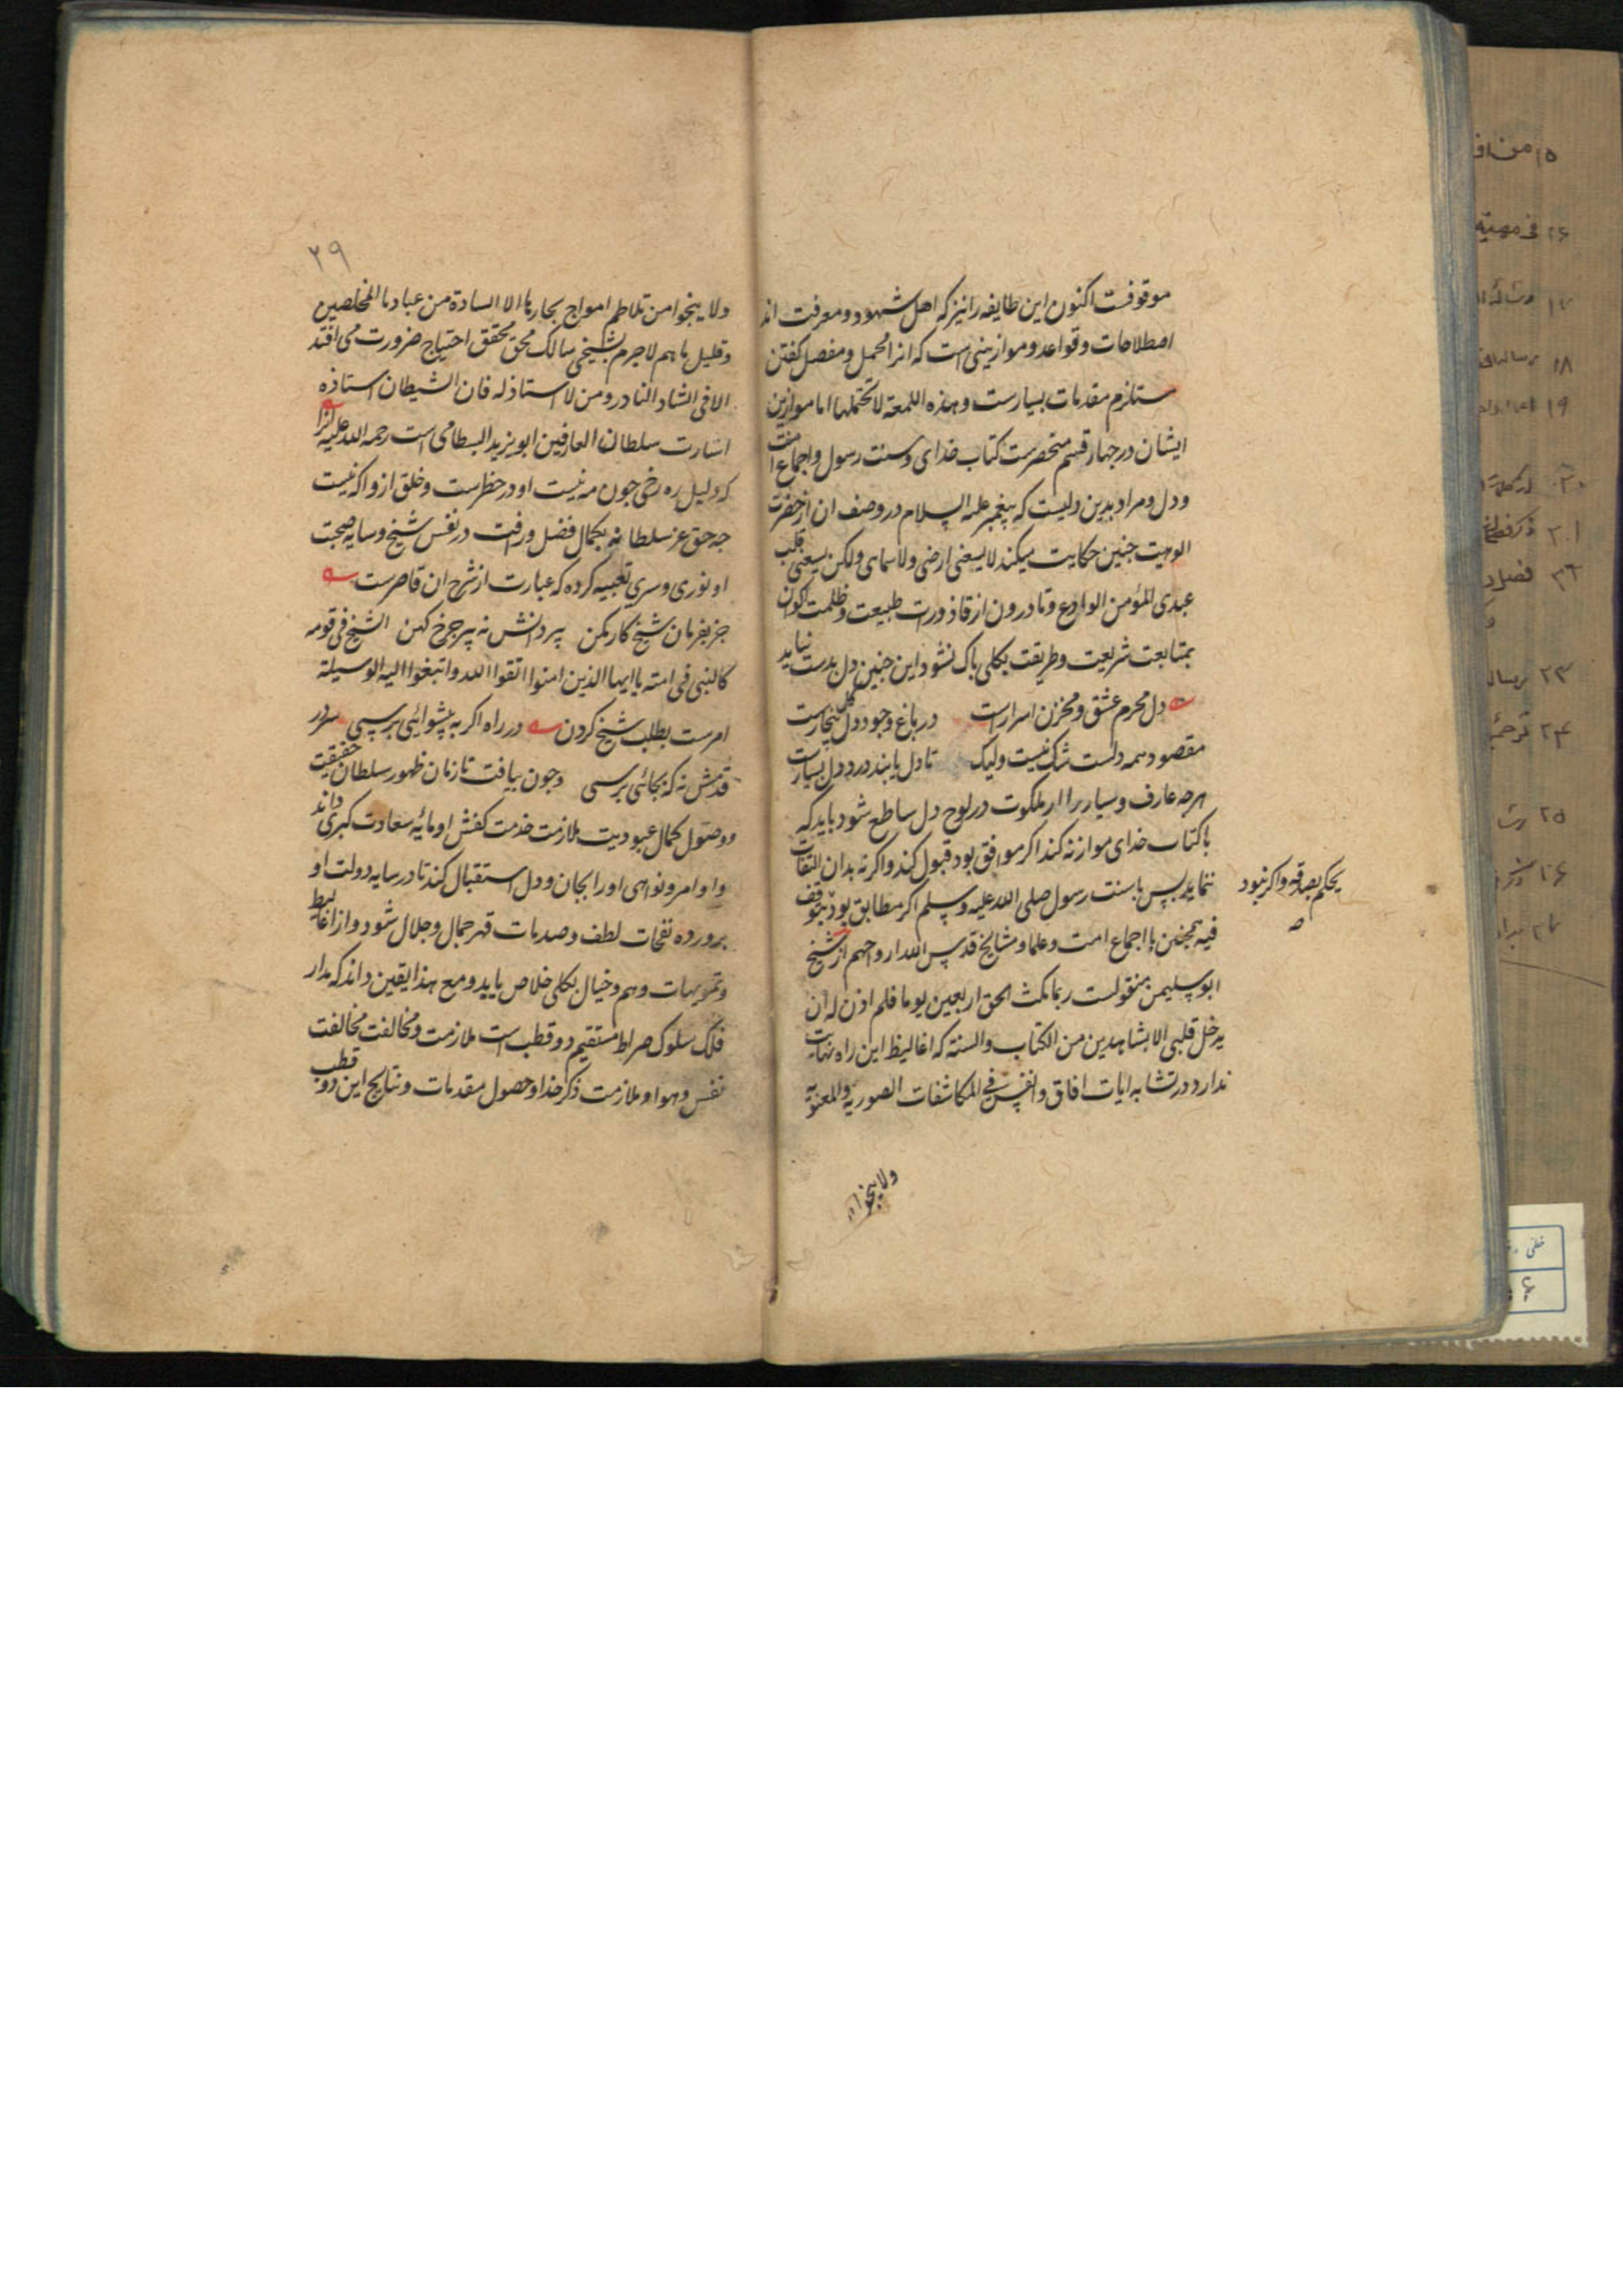 موقوفست اکنون این طایفه را نیز که اهل شهود و معرفت اند
اصطلاحات و قواعد و موازینی است که انرا مجمل و مفصل کفتن
مستلزم مقدمات بسیارست و هذه اللمعة لا تحتملها اما موازین
ایشان در جهار قسم منحصرست کتاب خدای و سنت رسول و اجماع امت
و دل و مراد بدین دلیست که پیغمبر علیه السلام در وصف ان از حضرت
الوهیت جنین حکایت میکند لا یسعنی ارضی ولا سمای ولکن یسعنی قلب
عبدی المؤمن الوادع و تا درون از قاذورات طبیعت و ظلمت اکوان
بمتابعت شریعت و طریقت بکلی باک نشود این جنین دل بدست نیاید
دل محرم عشق و مخزن اسرارست در باغ وجود دل کل بیخارست
مقصود همه دلست شک نیست ولیک تا دل یابند درد دل بسیارست
هرجه عارف و سیار را از ملکوت در لوح دل ساطع شود باید که
با کتاب خدای موازنه کند اکر موافق بود قبول کند و اکر نه بدان التفات
ننماید بس با سنت رسول صلی الله علیه وسلم اکر مطابق بود یتوقف
یحکم بصدقه و اکر نبود
صح
فیه همجنین با اجماع امت و علما و مشایخ قدس الله ارواحهم از شیخ
ابو سلیمن منقولست ربما نکث الحق اربعین یوما فلم اذن له ان
یدخل قلبی الا بشاهدین من الکتاب والسنة که اغالیظ این راه نهایت
ندارد در تشابه ایات افاق و انفس فی المکاشفات الصوریة والمعنویة
ولا ینجوا
۲۹
ولا ینجوا من تلاطم امواج بحارها الا السادة من عبادنا المخلصین
وقلیل ما هم لاجرم بشیخی سالک محق محقق احتیاج ضرورت می افتد
الا فی الشاذ النادر ومن لا استاذ له فان الشیطان استاذه
اشارت سلطان العارفین ابو یزید البسطامی است رحمه الله علیه انرا
که دلیل ره رخی جون مه نیست او در خطرست و خلق ازو اکه نیست
جه حق عز سلطانه بکمال فضل و رافت در نفس شیخ و سایه صحبت
او نوری و سری تعبیه کرده که عبارت از شرح ان قاصرست
جز بفرمان شیخ کار مکن پیر دانش نه پیر جرخ کهن الشیخ فی قومه
کالنبی فی امته یا ایها الذین امنوا اتقوا الله وابتغوا الیه الوسیلة
امرست بطلب شیخ کردن در راه اکر به پیشوائی برسی سر در
قدمش نه که بجائی برسی وجون بیافت تا زمان ظهور سلطان حقیقت
و وصول کمال عبودیت ملازمت خدمت کفش او مائه سعادت کبری داند
و اوامر و نواهی او را بجان و دل استقبال کند تا در سایه دولت او
برورده نفحات لطف و صدمات قهر جمال و جلال شود و از اغالیط
و تمویهات وهم و خیال بکلی خلاص یابد و مع هذا یقین داند که مدار
فلک سلوک صراط مستقیم دو قطب است ملازمت و مخالفت مخالفت
نفس و هوا و ملازمت ذکر خدا و حصول مقدمات و نتایج این دو قطب